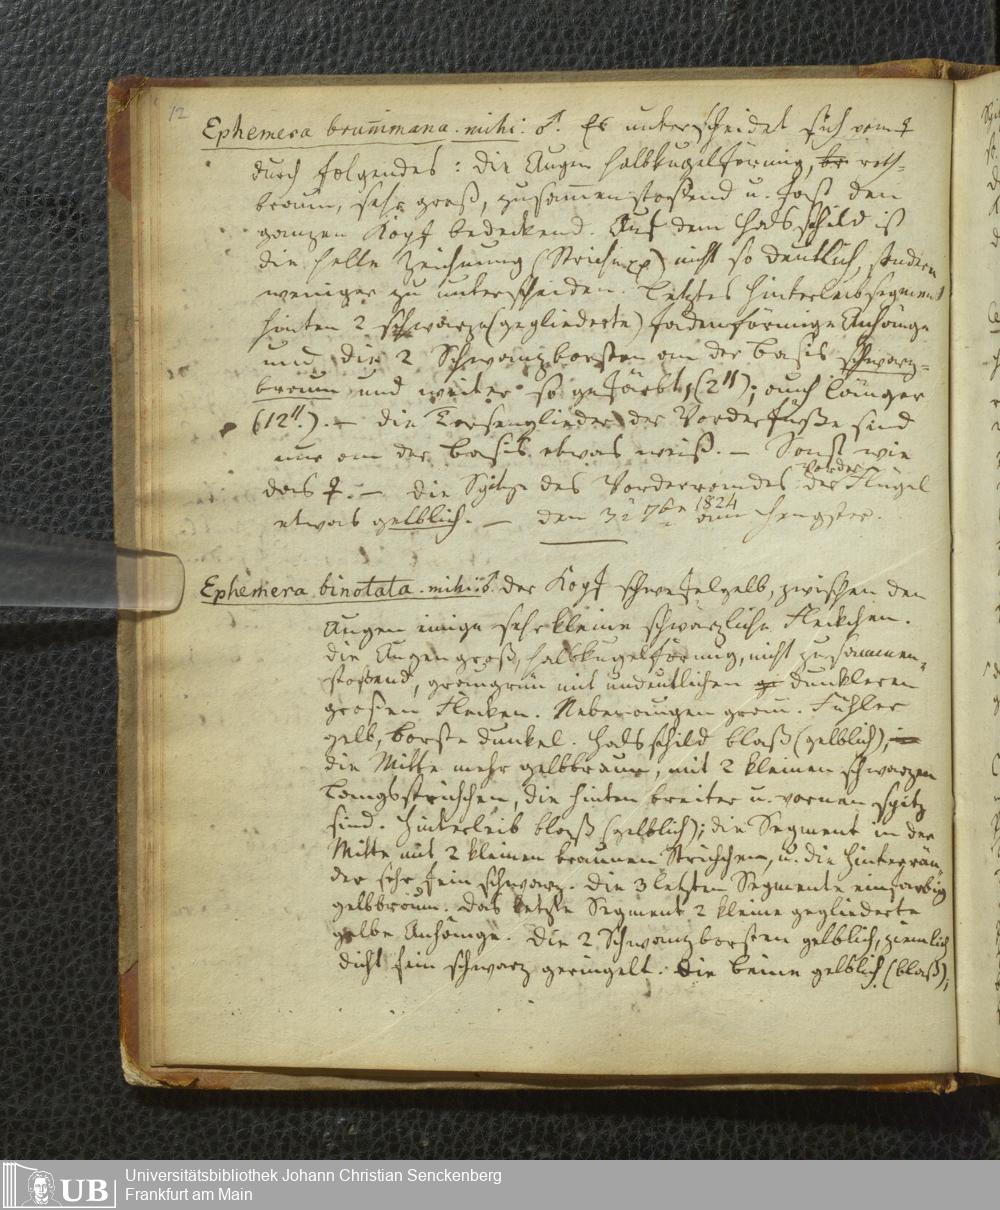 12
Ephemera brum̄mana. mihi. ♂. Er unterscheidet sich vom ♀
durch folgendes: die Augen halbkugelförmig, br roth-
braun, sehr groß, zusam̄enstoßend u. fast den
ganzen Kopf bedeckend. Auf dem Halsschild ist
die helle Zeichnung (Striche pp) nicht so deutlich, sondern
weniger zu unterscheiden. Letztes Hinterleibsegment
hinten 2 schwarze (gegliederte) fadenförmige Anhänge
und die 2 Schwanzborsten an der Basis schwarz-
braun und weiter so gefärbt, (2"); auch länger
(12"). – die Tarsenglieder der Vorderfüße sind
nur an der Basis etwas weiß. – Sonst wie
das ♀. – die Spitze des Vorderrandes der Vorder Flügel
etwas gelblich. – den 7br 1824 am Hengster.
Ephemera binotata. mihi. ♂. der Kopf schwefelgelb, zwischen den
Augen einige sehr kleine schwärzliche Fleckchen.
die Augen groß, halbkugelförmig, nicht zusammen-
stoßend, graugrün mit undeutlichen gr dunkleren
großen Flecken. Nebenaugen grau. Fühler
gelb, Borste dunkel. Halsschild blaß (gelblich), in
die Mitte mehr gelbbraun, mit 2 kleinen schwarzen
Längsstrichchen, die hinten breiter u. vornen spitz
sind. Hinterleib blaß (gelblich); die Segment in der
Mitte mit 2 kleinen braunen Strichchen, u. die Hinterrän-
der sehr fein schwarz. die 3 letzten Segmente einfarbig
gelbbraun. Das letzte Segment 2 kleine gegliederte
gelbe Anhänge. die 2 Schwanzborsten gelblich, ziemlich
dicht fein schwarz geringelt. Die Beine gelblich (blaß);
UB
Universitätsbibliothek Johann Christian Senckenberg
Frankfurt am Main